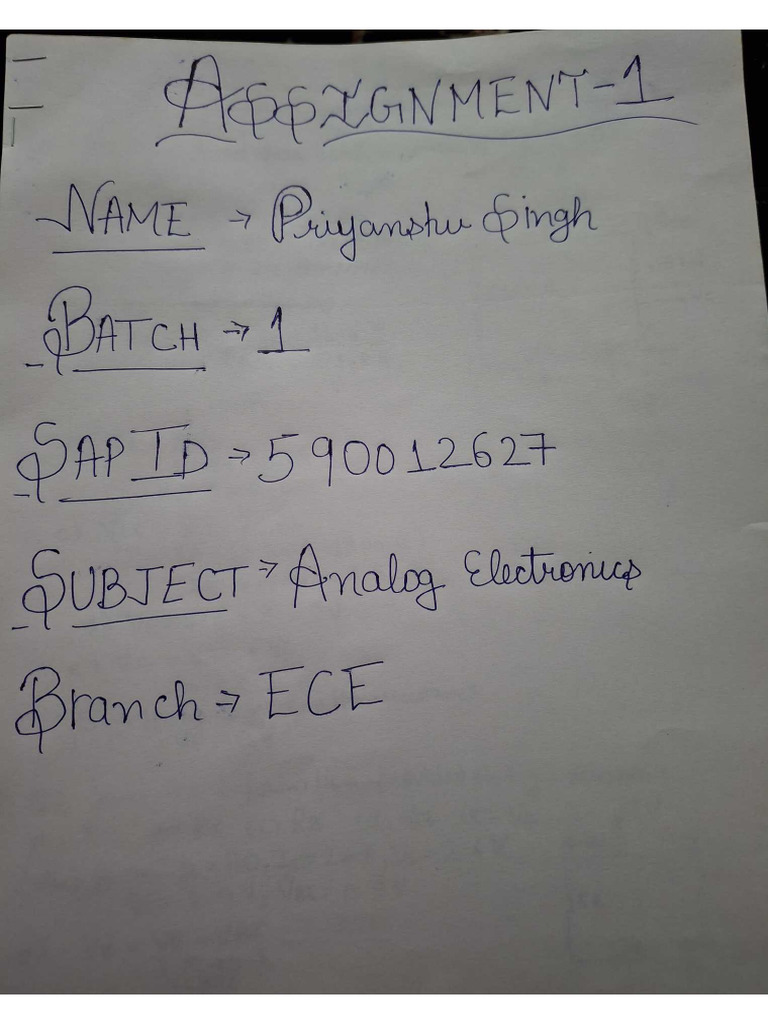 ASSIGNMENT-1
NAME → Priyanshu Singh
BATCH → 1
SAP ID → 590012627
SUBJECT → Analog Electronics
Branch → ECE